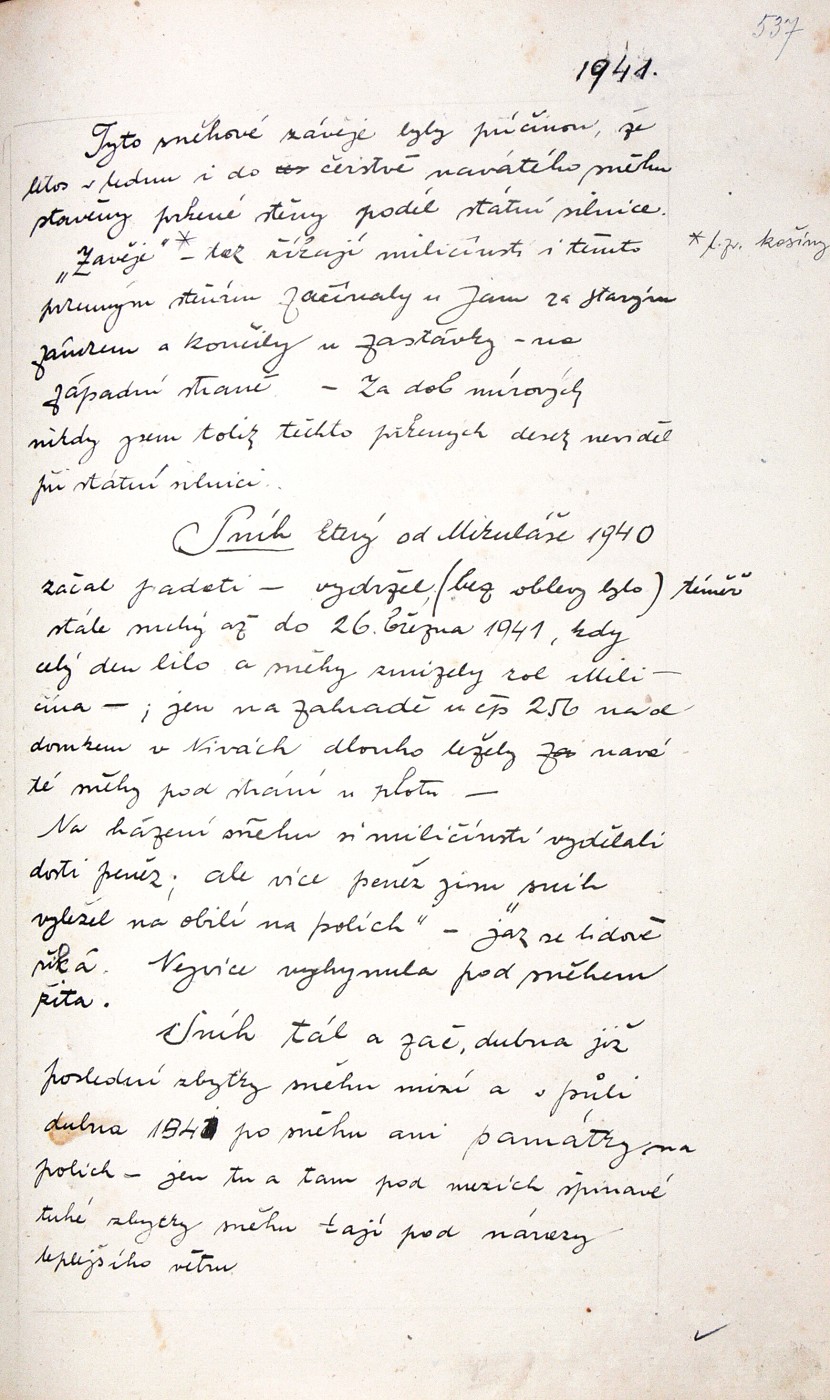 537
1941.
Tyto sněhové závěje byly příčinou, že
letos v lednu i do čerstvě navátého sněhu
stavěny prkené stěny podél státní silnice.
„Závěje“ * – tak říkají miličínstí i těmto
* t. zv. košiny
prkenným stěnám začínaly u Jam za starým
zámkem a končily u zastávky – na
západní straně – Za dob mírových
nikdy jsem tolik těchto prkených desek neviděl
při státní silnici.
Sníh který od Mikuláše 1940
začal padati – vydržel (bez oblevy bylo) téměř
stále suchý až do 26. března 1941, kdy
celý den lilo a sněhy zmizely kol Mili–
čína – ; jen na zahradě u čp 256 nad
domkem v Nivách dlouho ležely za navá
té sněhy pod strání u plotu –
Na házení sněhu si miličínstí vydělali
dosti peněz; ale více peněz jim sníh
vyležel na obilí na polích“ – jak se lidově
říká. Nejvíce vyhynula pod sněhem
žita.
Sníh tál a zač. dubna již
poslední zbytky sněhu mizí a v půli
dubna 1941 po sněhu ani památky na
polích – jen tu a tam pod mezích špinavé
tuhé zbytky sněhu tají pod nárazy
teplejšího větru